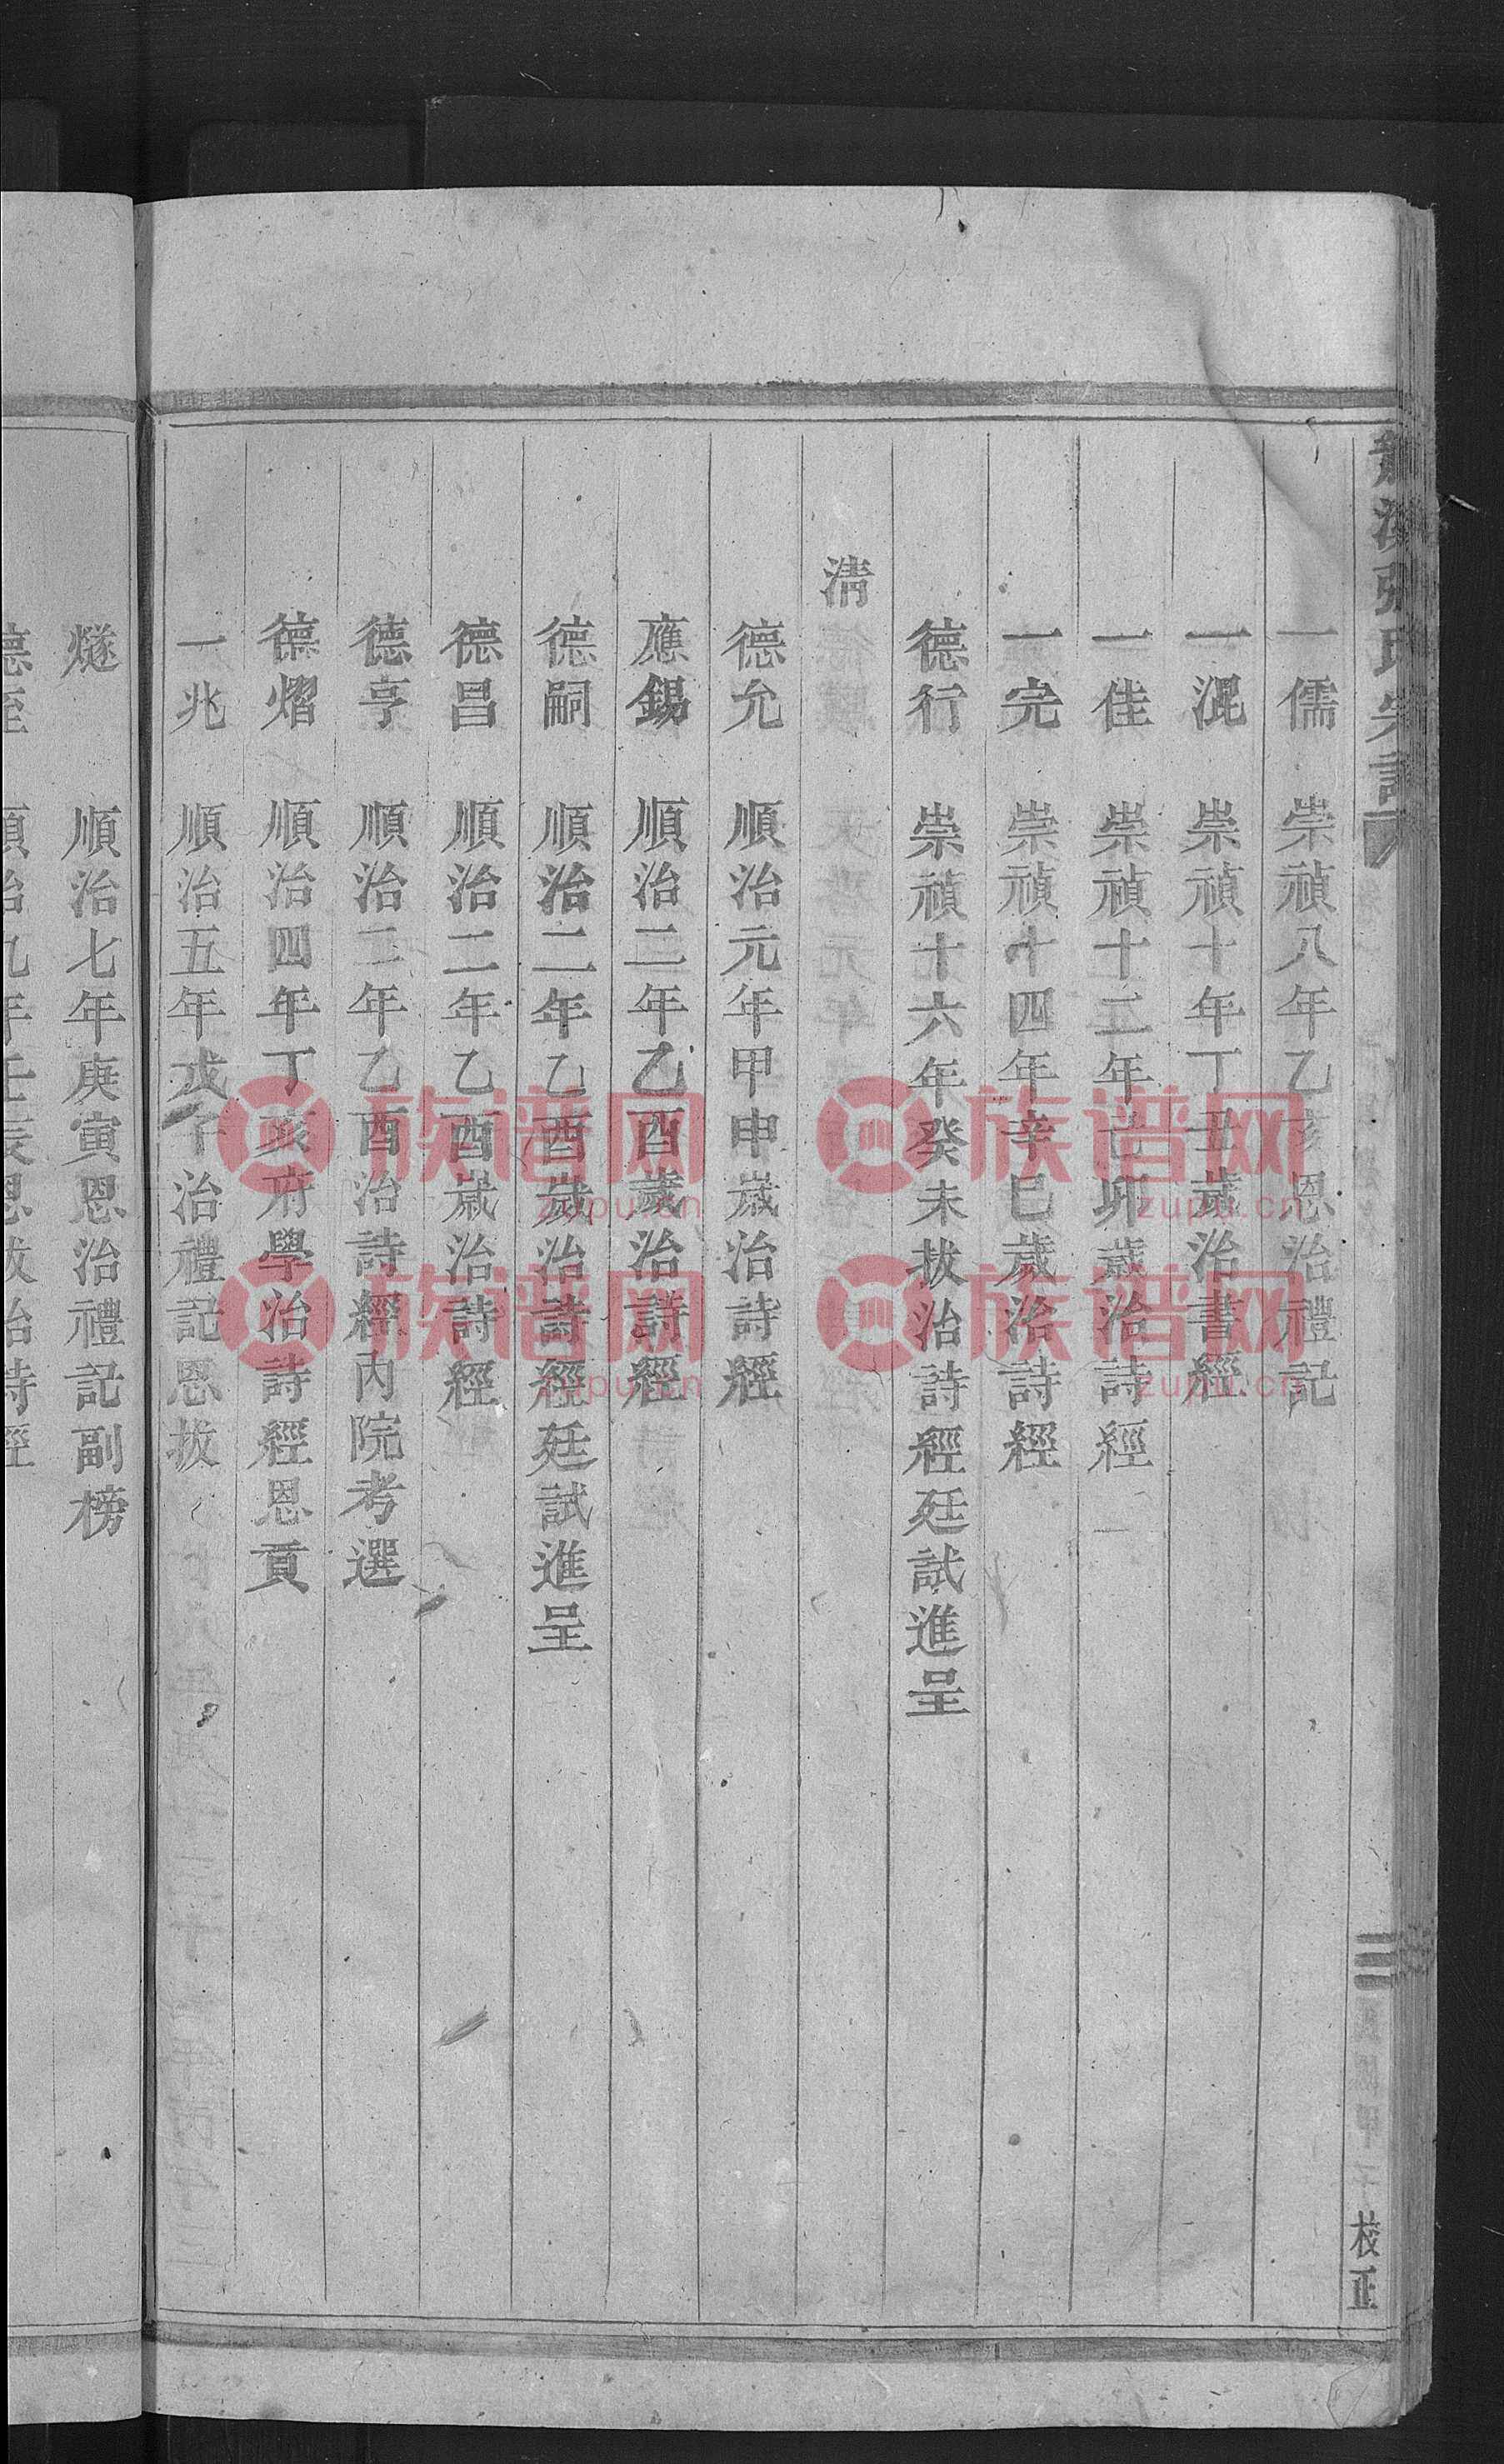 張氏宗譜
校正
一儒 崇禎八年乙亥恩治禮記
一混 崇禎十年丁丑歲治書經
一佳 崇禎十二年己卯歲治詩經
一完 崇禎十四年辛巳歲治詩經
德行 崇禎十六年癸未拔治詩經廷試進呈
清
德允 順治元年甲申歲治詩經
應錫 順治二年乙酉歲治詩經
德嗣 順治二年乙酉歲治詩經廷試進呈
德昌 順治二年乙酉歲治詩經
德亨 順治二年乙酉治詩經內院考選
德熠 順治四年丁亥府學治詩經恩貢
一兆 順治五年戊子治禮記恩拔
燧 順治七年庚寅恩治禮記副榜
德 順治九年壬辰恩拔治詩經
族谱网
zupu.cn
族谱网
zupu.cn
族谱网
zupu.cn
族谱网
zupu.cn